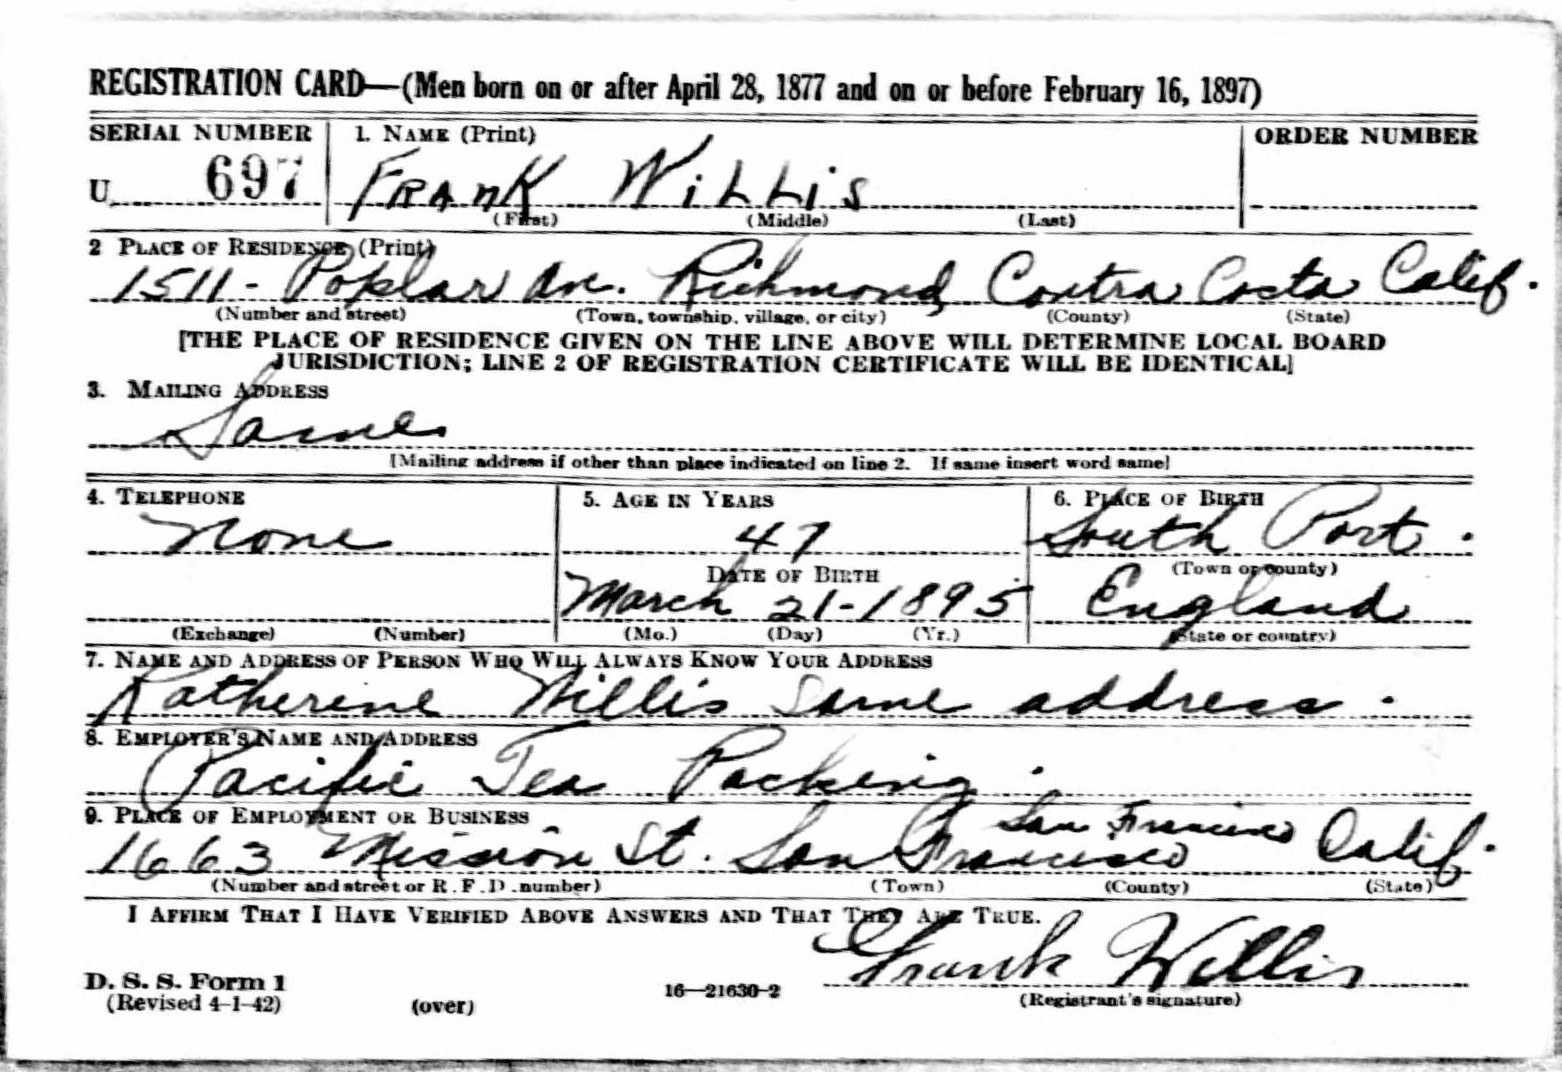 REGISTRATION CARD—(Men born on or after April 28, 1877 and on or before February 16, 1897)
SERIAL NUMBER 1. NAME (Print) ORDER NUMBER
U 697 FRANK WILLIS
(First) (Middle) (Last)
2 PLACE OF RESIDENCE (Print)
1511 - Poplar Av. Richmond, Contra Costa Calif.
(Number and street) (Town, township, village, or city) (County) (State)
[THE PLACE OF RESIDENCE GIVEN ON THE LINE ABOVE WILL DETERMINE LOCAL BOARD
JURISDICTION; LINE 2 OF REGISTRATION CERTIFICATE WILL BE IDENTICAL]
3. MAILING ADDRESS
Same
[Mailing address if other than place indicated on line 2. If same insert word same]
4. TELEPHONE 5. AGE IN YEARS 6. PLACE OF BIRTH
None 47 South Port.
DATE OF BIRTH (Town or county)
March 21-1895 England
(Exchange) (Number) (Mo.) (Day) (Yr.) (State or country)
7. NAME AND ADDRESS OF PERSON WHO WILL ALWAYS KNOW YOUR ADDRESS
Katherine Willis Same address.
8. EMPLOYER'S NAME AND ADDRESS
Pacific Tea Packing.
9. PLACE OF EMPLOYMENT OR BUSINESS
1663 Mission St. San Francisco San Francisco Calif.
(Number and street or R. F. D. number) (Town) (County) (State)
I AFFIRM THAT I HAVE VERIFIED ABOVE ANSWERS AND THAT THEY ARE TRUE.
Frank Willis
D. S. S. Form 1
(Revised 4-1-42) (over) 16—21630-2 (Registrant's signature)